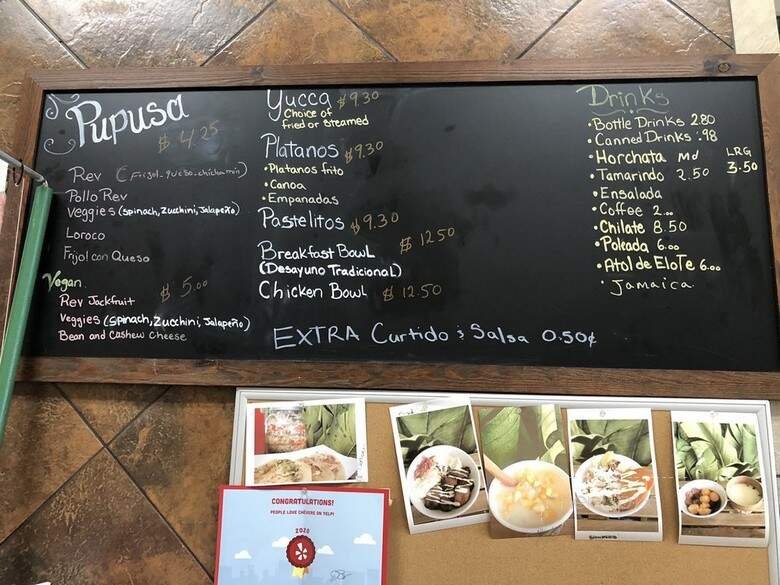 Pupusa $4.25
Rev (Frijol-queso-chicharrin)
Pollo Rev
Veggies (spinach, Zucchini, Jalapeño)
Loroco
Frijol con Queso
Vegan $5.00
Rev Jackfruit
Veggies (Spinach, Zucchini, Jalapeño)
Bean and Cashew Cheese
Yucca $9.30
Choice of
fried or steamed
Platanos $9.30
• Platanos frito
• Canoa
• Empanadas
Pastelitos $9.30
Breakfast Bowl $12.50
(Desayuno Tradicional)
Chicken Bowl $12.50
EXTRA Curtido & Salsa 0.50¢
Drinks
• Bottle Drinks 2.80
• Canned Drinks .98
• Horchata Md LRG
• Tamarindo 2.50 3.50
• Ensalada
• Coffee 2.00
• Chilate 8.50
• Poleada 6.00
• Atol de Elote 6.00
• Jamaica
CONGRATULATIONS!
PEOPLE LOVE CHÉVERE ON YELP!
2020